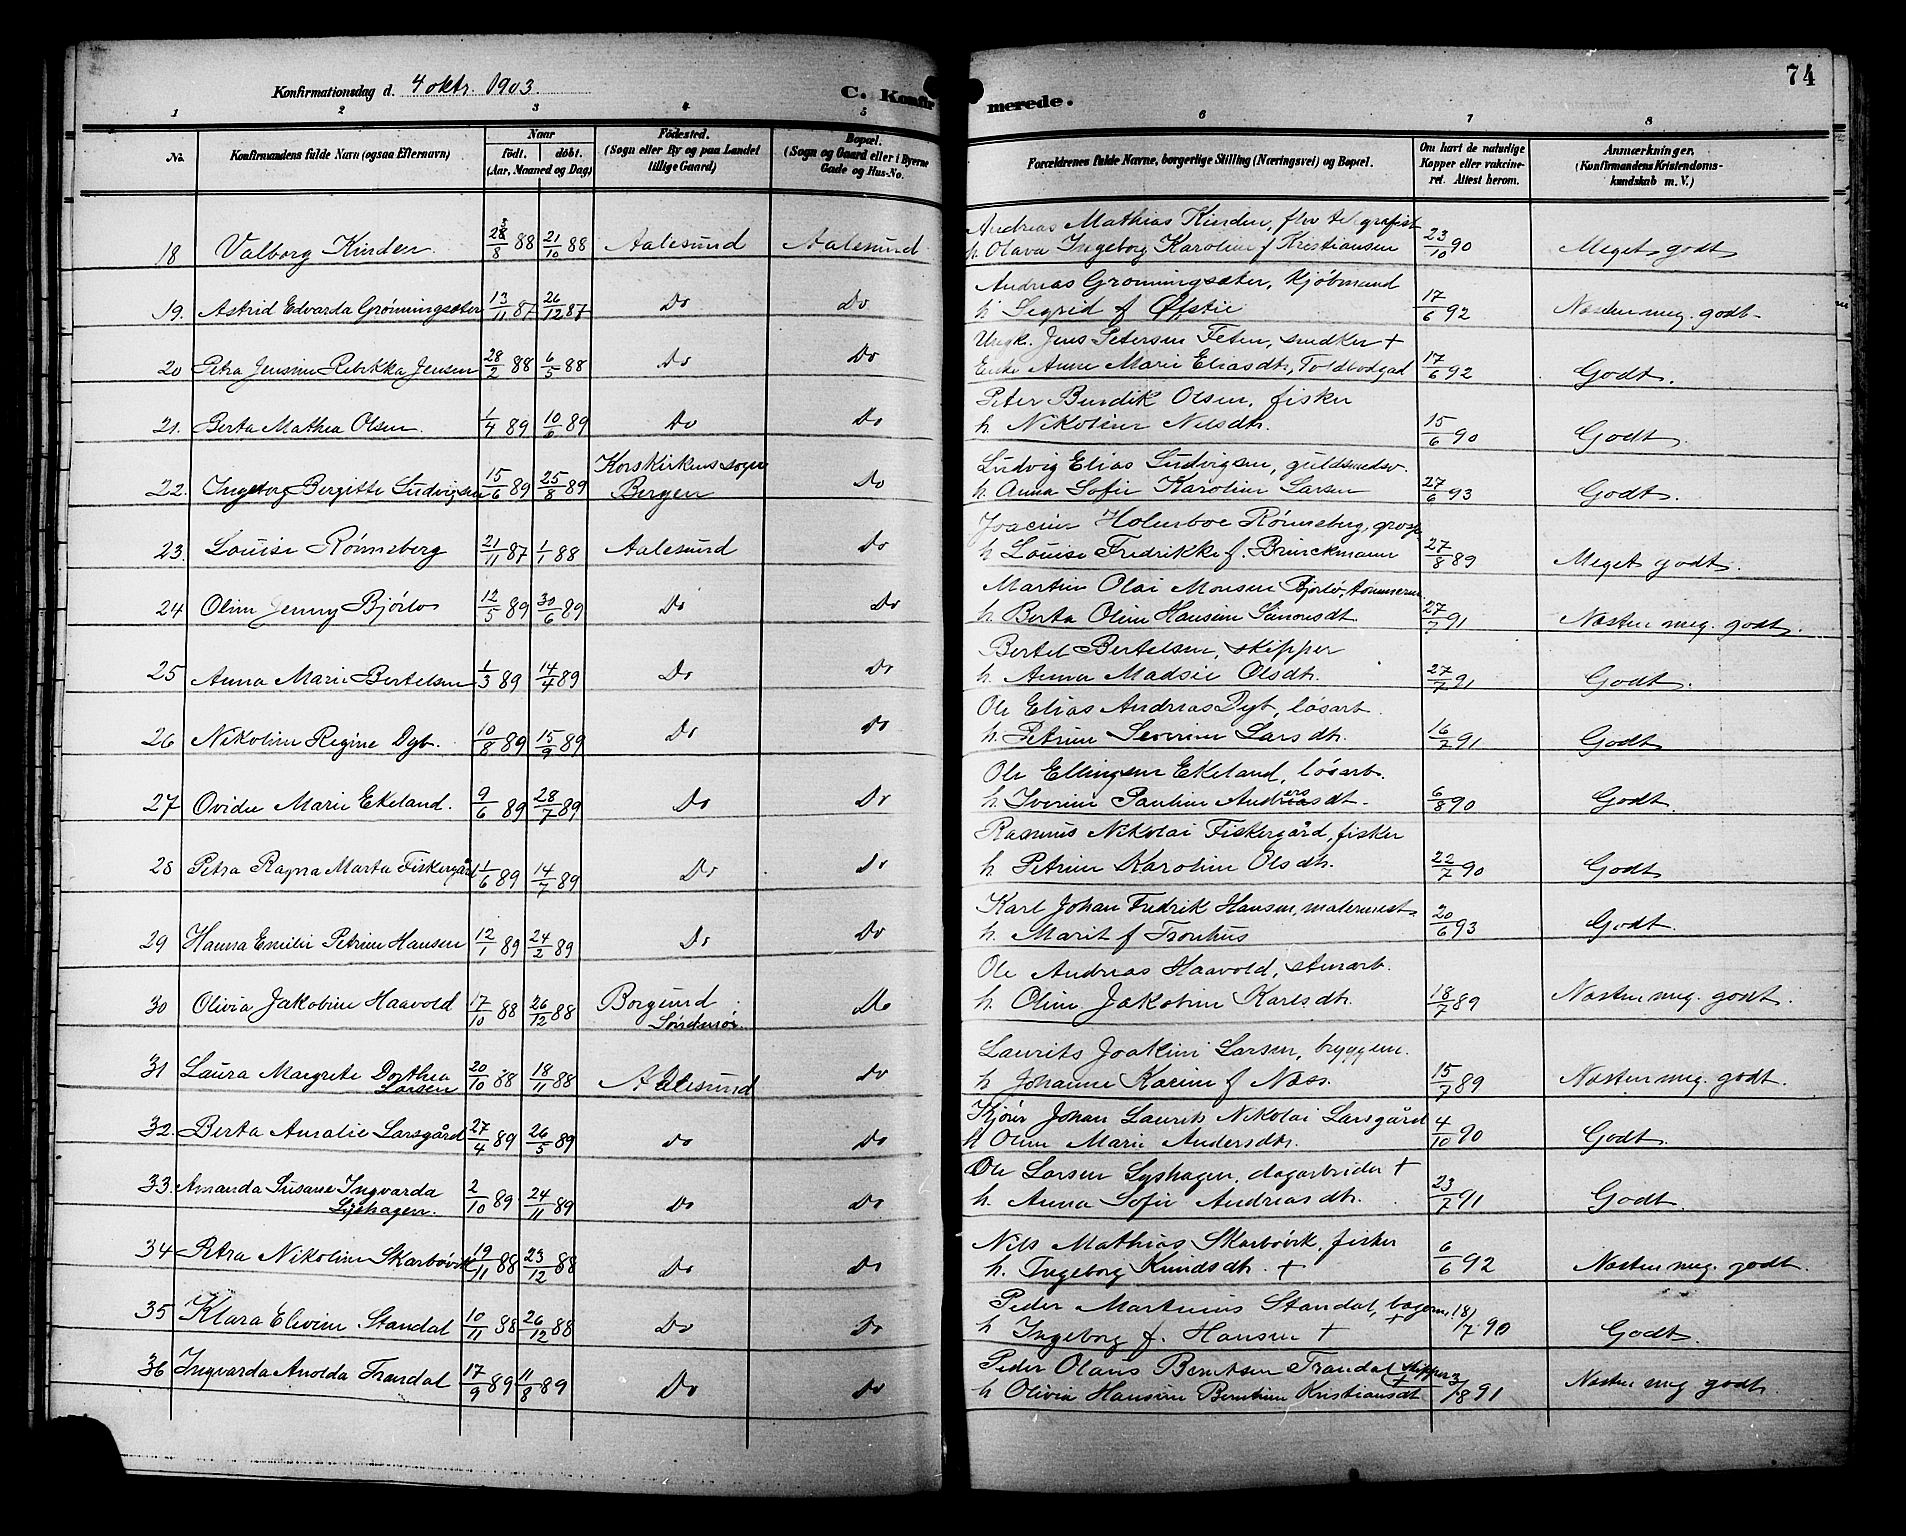 Konfirmationsdag d. 4 oktr. 1903. C. Konfirmerede. 74
1 2 3 4 5 6 7 8
No. Konfirmandens fulde Navn (ogsaa Efternavn) Naar født. døbt. (Aar, Maaned og Dag) Fødested. (Sogn eller By og paa Landet tillige Gaard) Bopæl. (Sogn og Gaard eller i Byerne Gade og Hus-No. Forældrenes fulde Navne, borgerlige Stilling (Næringsvei) og Bopæl. Om havt de naturlige Kopper eller vakcineret. Attest herom. Anmærkninger. (Konfirmandens Kristendomskundskab m. V.)
Andreas Mathias Kinden, fhv telegrafist
18 Valborg Kinden 28/8 88 21/10 88 Aalesund Aalesund h. Olava Ingeborg Karoline f Kristiansen 23/10 90 Meget godt
Andreas Grønningsæter, Kjøbmand
19. Astrid Edvarda Grønningsæter 13/11 87 26/12 87 Do Do h Sigrid f Øfstie 17/6 92 Næsten meg. godt
Ungk. Jens Petersen Feten, snedker +
20 Petra Jensine Rebekka Jensen 28/2 88 6/5 88 Do Do Enke Anne Marie Eliasdtr, Toldbodgad 17/6 92 Godt.
Peter Bendik Olsen, fisker
21. Berta Mathea Olsen. 1/4 89 10/6 89 Do Do h. Nikoline Nilsdtr. 15/6 90 Godt
Ludvig Elias Ludvigsen, guldsmedsv.
22. Ingeborg Bergitte Ludvigsen 15/6 89 25/8 89 Korskirkens sogn Bergen Do h. Anna Sofie Karoline Larsen 27/6 93 Godt.
Joacim Holmboe Rønneberg, gross
23. Louise Rønneberg 21/11 87 1/1 88 Aalesund Do h Louise Fredrikke f. Brinckmann 27/8 89 Meget godt.
Martin Olai Monsen Bjørlo, tømmerm
24 Oline Jenny Bjørlo 12/5 89 30/6 89 Do Do h Berta Oline Hansine Simonsdt. 27/7 91 Næsten meg. godt.
Bertel Bertelsen, skipper
25 Anna Marie Bertelsen 1/3 89 14/4 89 Do Do h. Anna Madsie Olsdtr. 27/7 91 Godt.
Ole Elias Andreas Dyb, løsarb.
26 Nikoline Regine Dyb. 10/8 89 15/9 89 Do Do h Petrine Severine Larsdtr. 16/2 91 Godt
Ole Ellingsen Ekeland, løsarb.
27 Ovidie Marie Ekeland. 9/6 89 28/7 89 Do Do h Iverine Pauline Andersdt. 6/8 90 Godt
Rasmus Nikolai Fiskergård, fisker
28 Petra Ragna Marta Fiskergård 1/6 89 14/7 89 Do Do h Petrine Karoline Olsdtr. 22/7 90 Godt
Karl Johan Fredrik Hansen, malermest
29 Hanna Emilie Petrine Hansen 12/1 89 24/2 89 Do Do h. Marit f Tronhus 20/6 93 Godt.
Ole Andreas Haavold, stenarb.
30 Olivia Jakobine Haavold 17/10 88 26/12 88 Borgund Søndmør. Do h. Oline Jakobine Karlsdtr. 18/7 89 Næsten meg. godt.
Laurits Joakim Larsen, byggem.
31 Laura Margrete Dorthea Larsen 20/10 88 18/11 88 Aalesund do h Johanne Karine f Næss. 15/7 89 Næsten meg. godt.
Kjører Johan Laurits Nikolai Larsgård
32. Berta Amalie Larsgård 27/4 89 26/5 89 do do h Oline Marie Andersdtr. 4/10 90 Godt.
Ole Larsen Lyshagen, dagarbeider +
33. Amanda Susane Ingvarda Lyshagen. 2/10 89 24/11 89 Do Do h. Anna Sofie Andreasdtr. 23/7 91 Godt
Nils Mathias Skarbøvik, fisker
34 Petra Nikoline Skarbøvik 19/11 88 23/12 88 Do Do h. Ingeborg Knudsdtr. + 6/6 92 Næsten meg. godt.
Peder Martinus Standal, bagerm. +
35 Klara Elivine Standal 10/11 88 26/12 88 Do Do h Ingeborg f. Hansen + 18/7 90 Godt.
Peder Olaus Berntsen Trandal skipper +
36 Ingvarda Anolda Trandal 17/9 89 11/8 89 Do Do h Olivia Hansine Berntine Kristiansdt 3/8 91 Næsten meg godt.